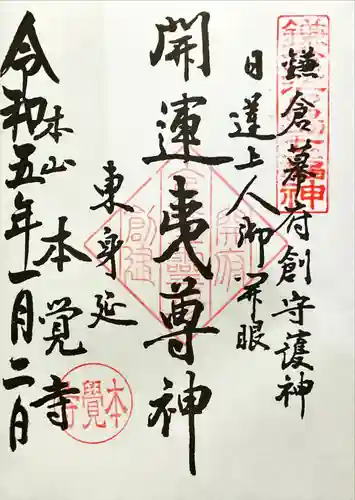 鎌倉幕府創守護神
日蓮上人御開眼
開運夷尊神
東身延
本山 本覚寺
令和五年一月二日
本覺寺